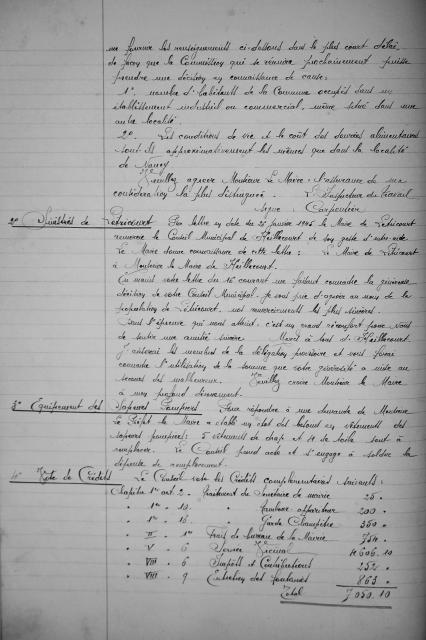 me fournir les renseignements ci-dessous dans le plus court délai,
de façon que la Commission qui se réunira prochainement puisse
prendre une décision en connaissance de cause:
1°. nombre d'habitants de la Commune occupés dans un
établissement industriel ou commercial, même situé dans une
autre localité.
2°. Les conditions de vie et le coût des denrées alimentaires
sont-ils approximativement les mêmes que dans la localité
de Nancy
Veuillez agréer Monsieur Le Maire l'assurance de ma
considération la plus distinguée. L'Inspecteur du travail
Signé Carpentier
2° Sinistrés de Létricourt Par lettre en date du 25 janvier 1945 le Maire de Létricourt
remercie le Conseil Municipal de Heillecourt de son geste d'entr'aide
Le Maire donne connaissance de cette lettre: Le Maire de Létricourt
à Monsieur le Maire de Heillecourt.
En mains votre lettre du 15 courant me faisant connaître la généreuse
décision de votre Conseil Municipal. Je vous prie d'agréer au nom de la
population de Létricourt, nos remerciements les plus sincères.
Dans l'épreuve qui nous atteint, c'est un grand réconfort pour nous
de sentir une amitié sincère Merci à tous d'Heillecourt.
J'aviserai les membres de la délégation provisoire et vous ferai
connaître l'utilisation de la somme que votre générosité a mise au
secours des malheureux. Veuillez croire Monsieur le Maire
à mon profond dévouement.
3° Equipement des Sapeurs Pompiers Pour répondre à une demande de Monsieur
Le Préfet le Maire a établi un état des besoins en vêtements des
sapeurs pompiers: 5 vêtements de drap et 14 de toile sont à
remplacer. Le Conseil prend acte et s'engage à solder la
dépense de remplacement.
4° Vote de Crédits Le Conseil vote les Crédits complémentaires suivants:
Chapitre 1er art. 2. Traitement du Secrétaire de mairie 25 "
" 1er " 12. " Tambour appariteur 200 "
" 1er " 16. " Garde Champêtre 350 "
" II " 1er Frais de bureau de la Mairie 754 "
" V " 6 Service Vicinal 4606.10
" VIII " 6 Impôts et Contributions 252 "
" VIII " 9 Entretien des fontaines 863 "
Total 7050.10